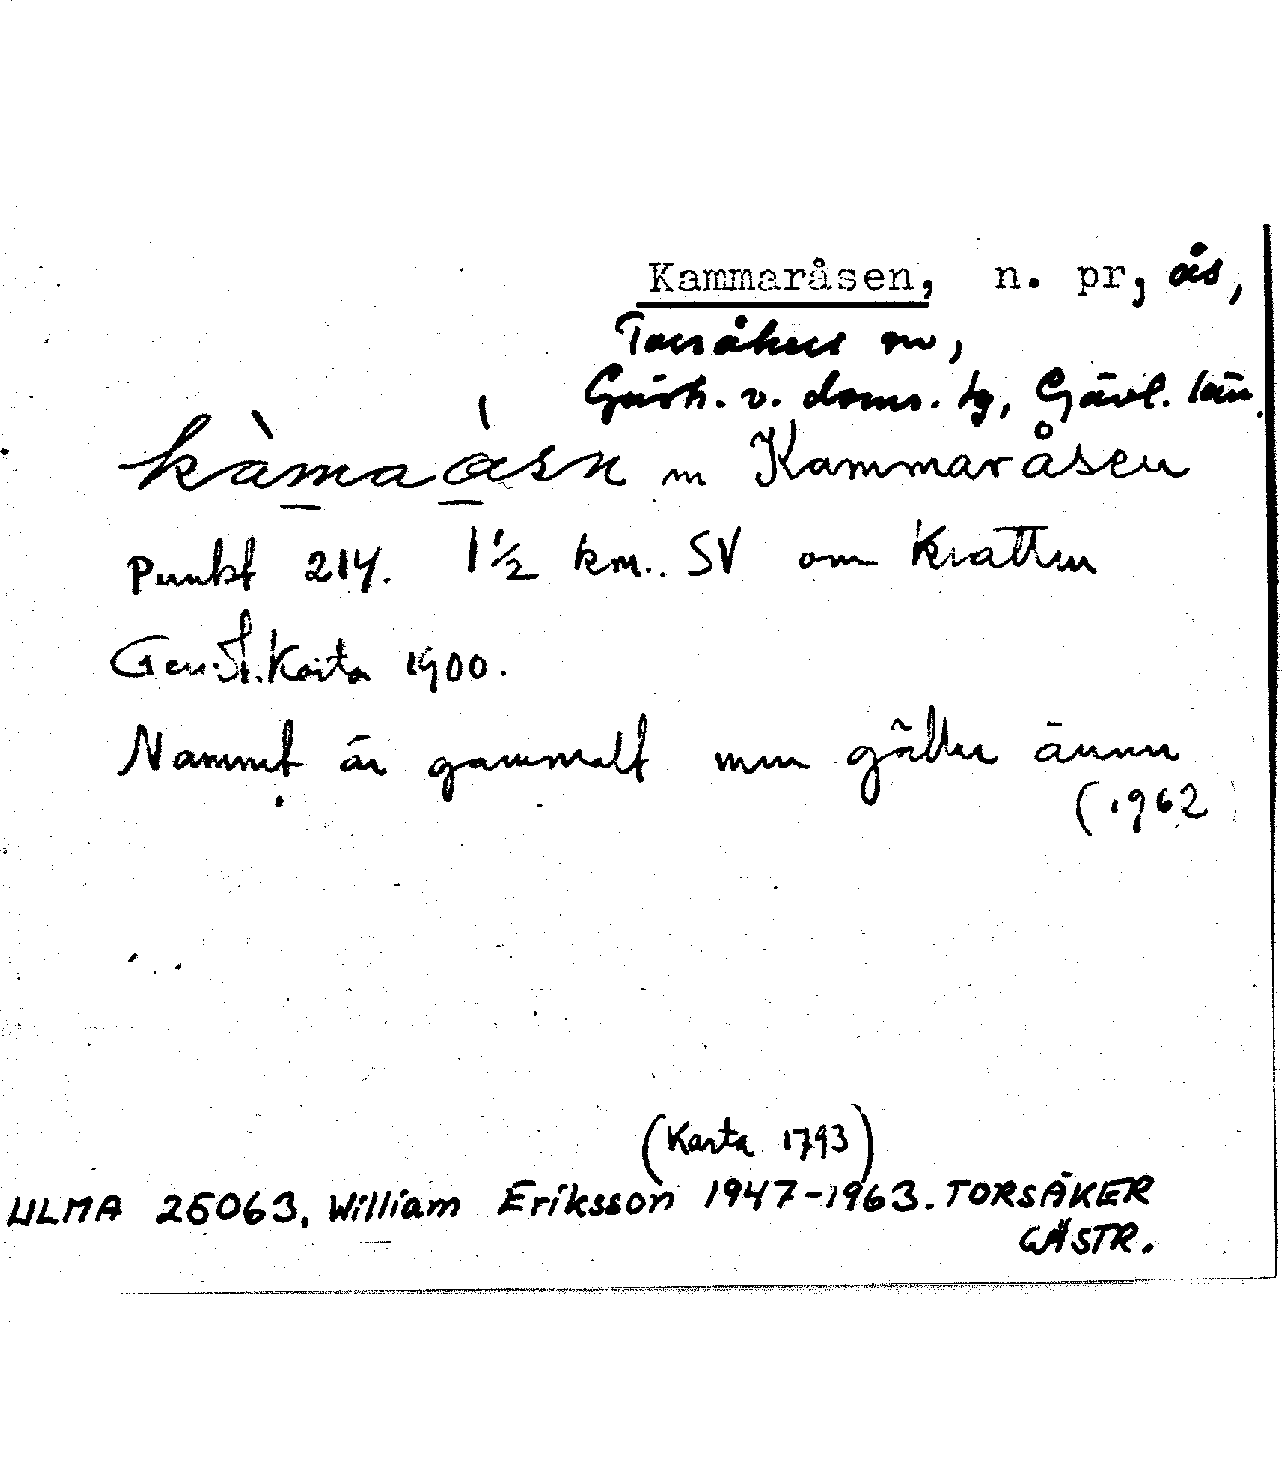 Kammaråsen, n. pr, ås,
Torsåkers sn,
Gästr. v. doms. tg, Gävl. län.
kàmaàsn m Kammaråsen
Punkt 214. 1 1/2 km. SV om Kratten
Gen. St. Karta 1900.
Namnet är gammalt men gäller ännu
(1962
(Karta 1793)
ULMA 25063, William Eriksson 1947-1963. TORSÅKER
GÄSTR.